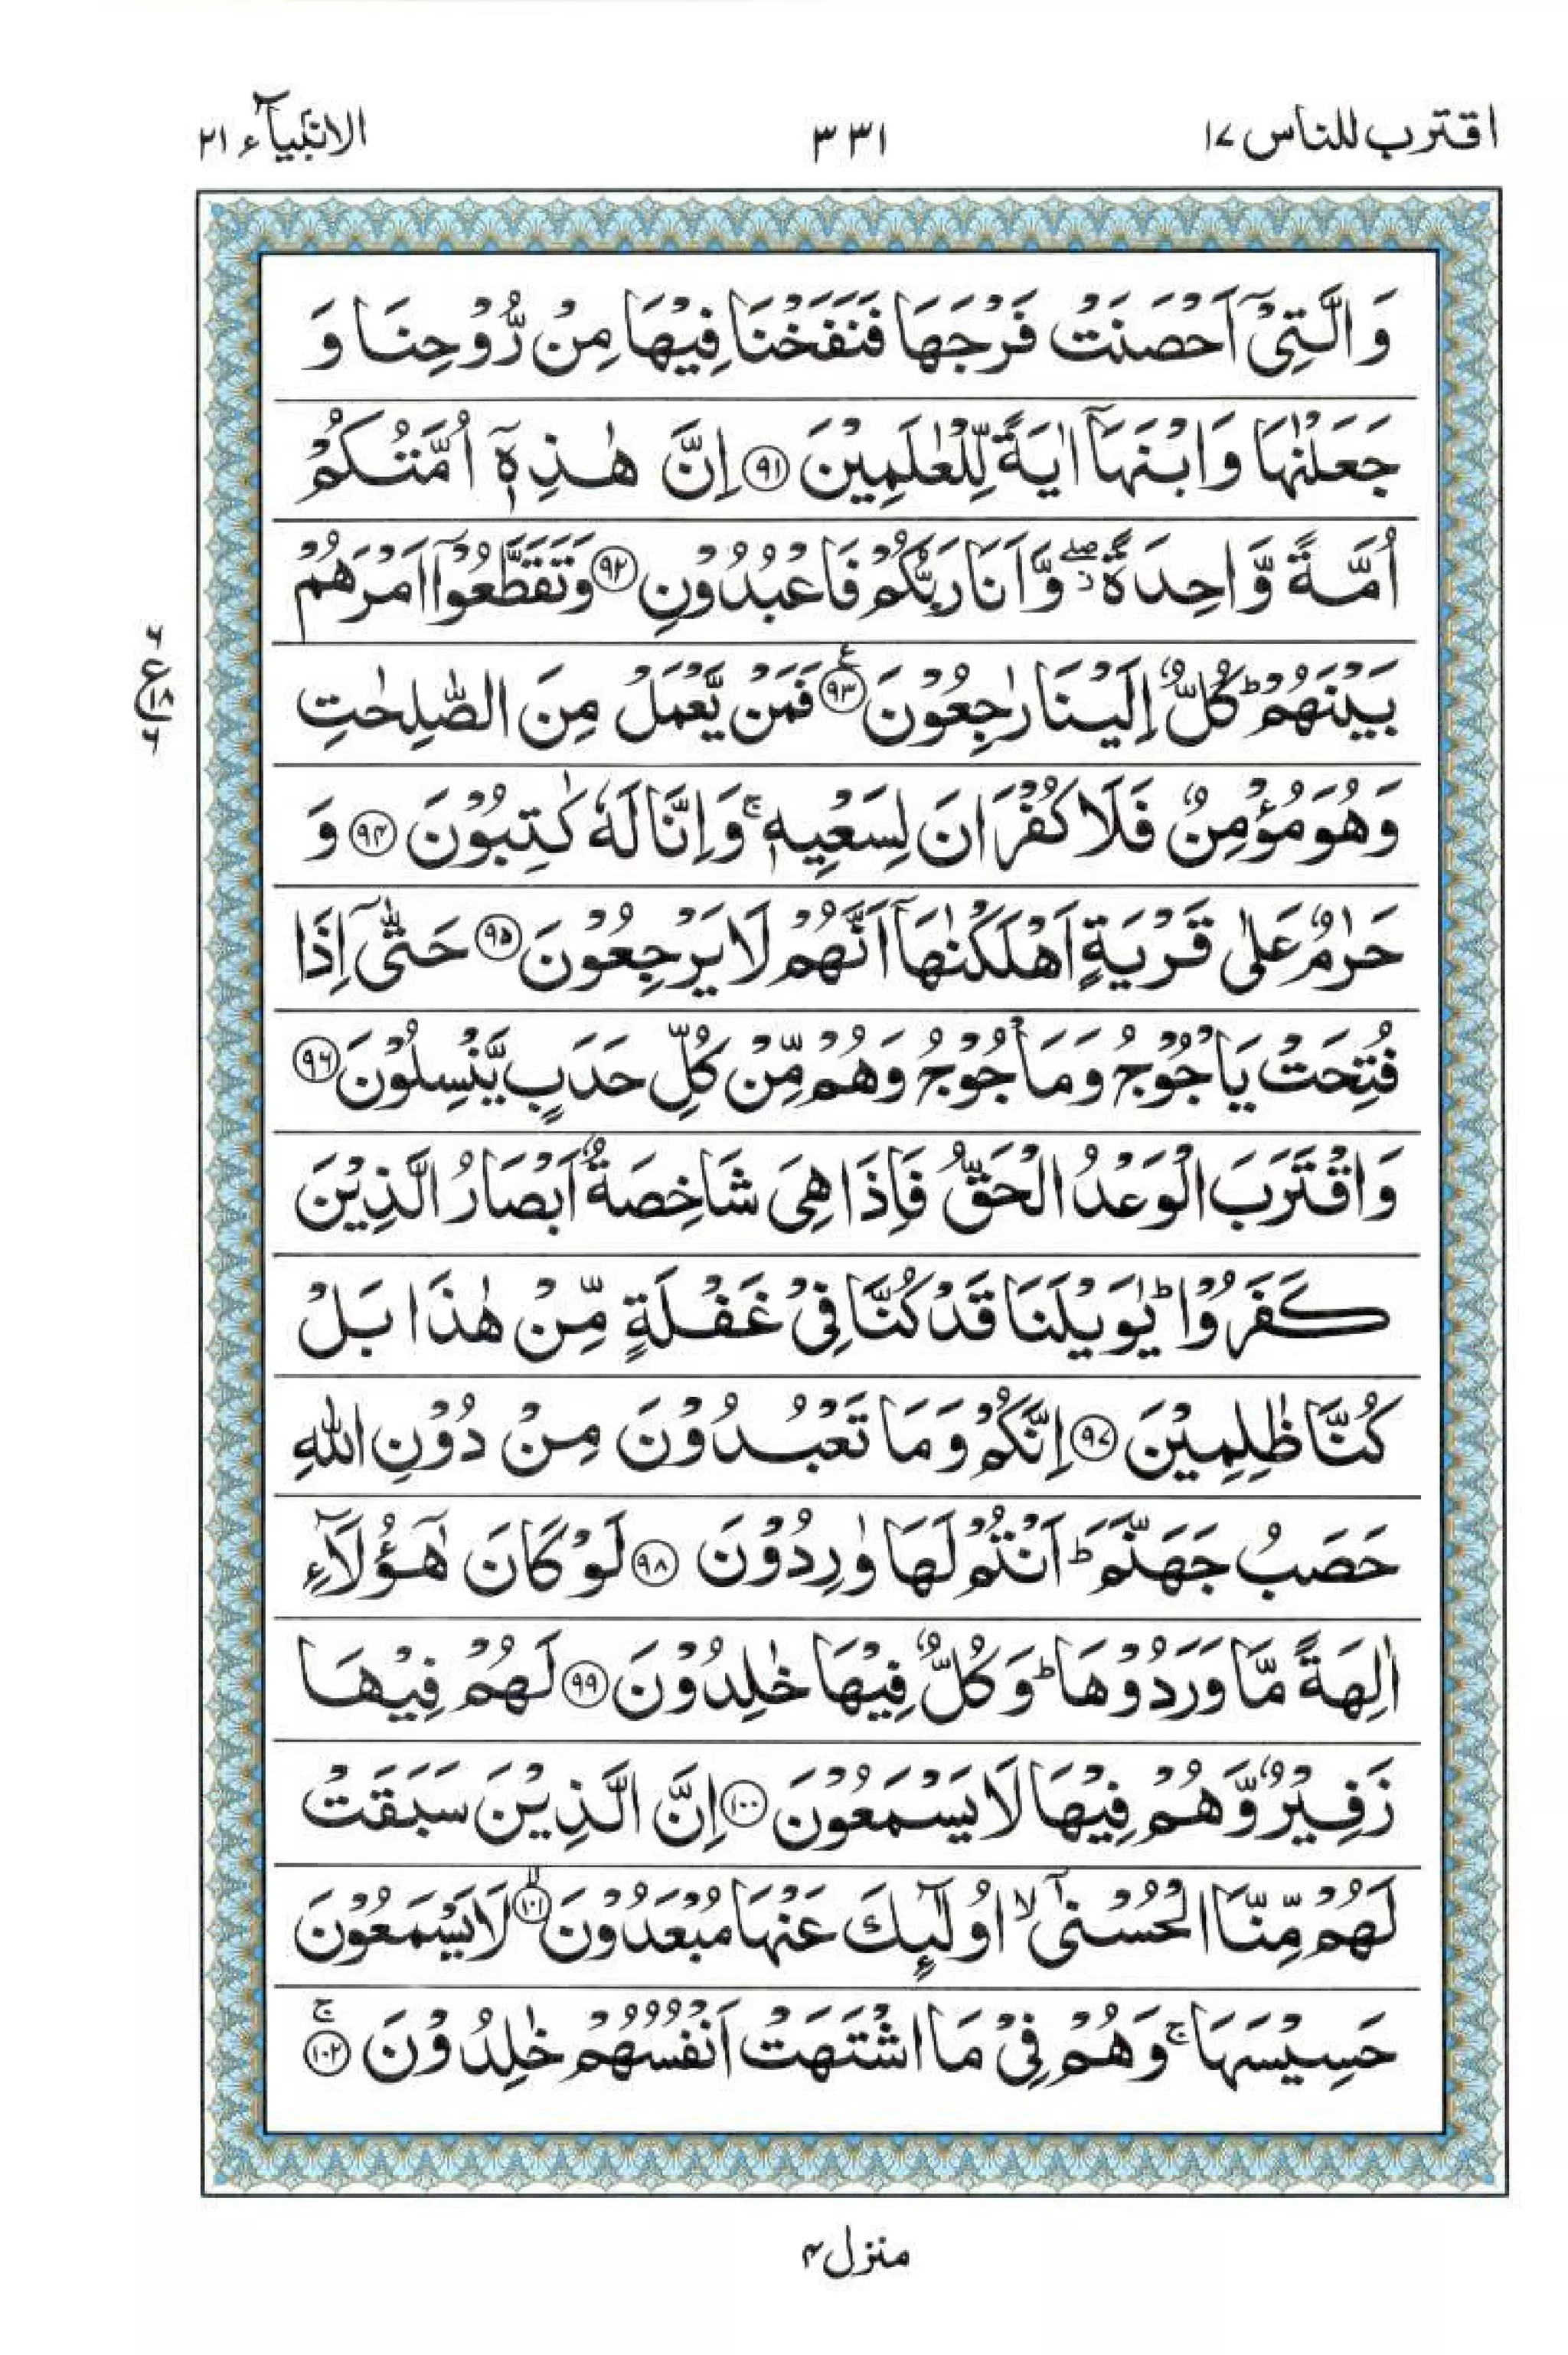 اقترب للناس ١٧
٣٣١
الانبیآء ٢١
وَالَّتِیْۤ اَحْصَنَتْ فَرْجَهَا فَنَفَخْنَا فِیْهَا مِنْ رُّوْحِنَا وَ
جَعَلْنٰهَا وَابْنَهَاۤ اٰیَةً لِّلْعٰلَمِیْنَ ﴿٩١﴾ اِنَّ هٰذِهٖۤ اُمَّتُكُمْ
اُمَّةً وَّاحِدَةً ۖؗ وَّاَنَا رَبُّكُمْ فَاعْبُدُوْنِ ﴿٩٢﴾ وَتَقَطَّعُوْۤا اَمْرَهُمْ
بَیْنَهُمْ ؕ كُلٌّ اِلَیْنَا رٰجِعُوْنَ ﴿٩٣﴾ ع فَمَنْ یَّعْمَلْ مِنَ الصّٰلِحٰتِ
وَهُوَ مُؤْمِنٌ فَلَا كُفْرَانَ لِسَعْیِهٖ ۚ وَاِنَّا لَهٗ كٰتِبُوْنَ ﴿٩٤﴾ وَ
حَرٰمٌ عَلٰی قَرْیَةٍ اَهْلَكْنٰهَاۤ اَنَّهُمْ لَا یَرْجِعُوْنَ ﴿٩٥﴾ حَتّٰۤی اِذَا
فُتِحَتْ یَاْجُوْجُ وَمَاْجُوْجُ وَهُمْ مِّنْ كُلِّ حَدَبٍ یَّنْسِلُوْنَ ﴿٩٦﴾
وَاقْتَرَبَ الْوَعْدُ الْحَقُّ فَاِذَا هِیَ شَاخِصَةٌ اَبْصَارُ الَّذِیْنَ
كَفَرُوْا ؕ یٰوَیْلَنَا قَدْ كُنَّا فِیْ غَفْلَةٍ مِّنْ هٰذَا بَلْ
كُنَّا ظٰلِمِیْنَ ﴿٩٧﴾ اِنَّكُمْ وَمَا تَعْبُدُوْنَ مِنْ دُوْنِ اللّٰهِ
حَصَبُ جَهَنَّمَ ؕ اَنْتُمْ لَهَا وٰرِدُوْنَ ﴿٩٨﴾ لَوْ كَانَ هٰۤؤُلَآءِ
اٰلِهَةً مَّا وَرَدُوْهَا ؕ وَكُلٌّ فِیْهَا خٰلِدُوْنَ ﴿٩٩﴾ لَهُمْ فِیْهَا
زَفِیْرٌ وَّهُمْ فِیْهَا لَا یَسْمَعُوْنَ ﴿١٠٠﴾ اِنَّ الَّذِیْنَ سَبَقَتْ
لَهُمْ مِّنَّا الْحُسْنٰۤی ۙ اُولٰٓىِٕكَ عَنْهَا مُبْعَدُوْنَ ﴿١٠١﴾ ۙ لَا یَسْمَعُوْنَ
حَسِیْسَهَا ۚ وَهُمْ فِیْ مَا اشْتَهَتْ اَنْفُسُهُمْ خٰلِدُوْنَ ﴿١٠٢﴾ ۚ
٦ ع ١٨ ٦
منزل ٤